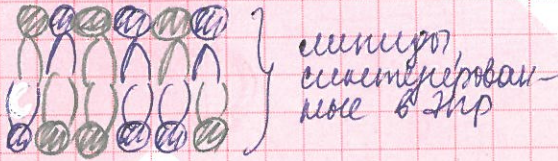 липиды,
синтезирован-
ные в ЭПР